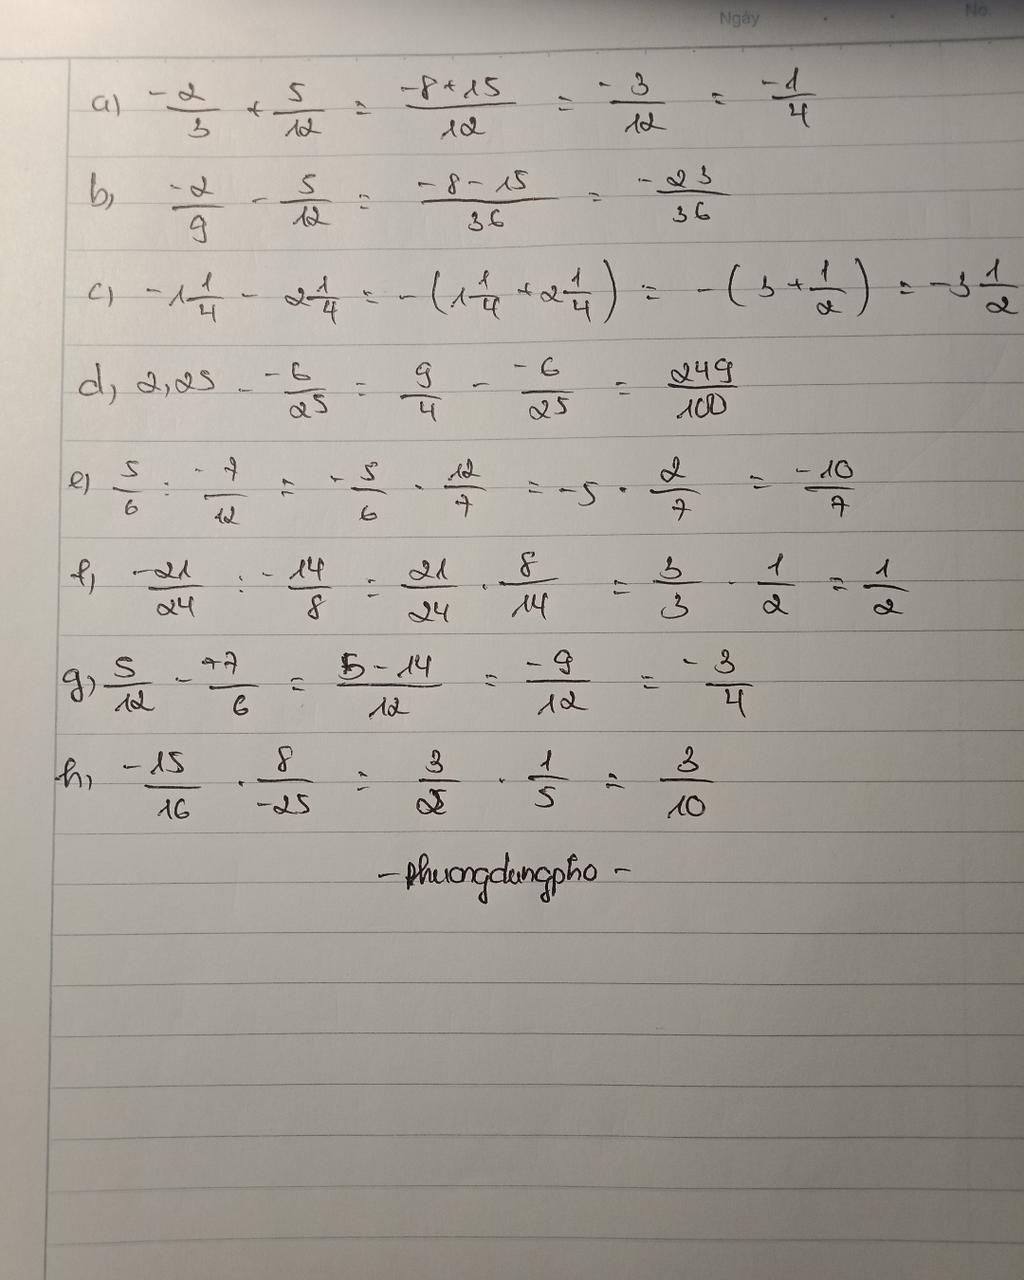 Ngày No.
a) -2/3 + 5/12 = -8+15/12 = -3/12 = -1/4
b, -2/9 - 5/12 = -8-15/36 = -23/36
c) -1 1/4 - 2 1/4 = -(1 1/4 + 2 1/4) = -(3 + 1/2) = -3 1/2
d, 2,25 - -6/25 = 9/4 - -6/25 = 249/100
e) 5/6 : -7/12 = -5/6 . 12/7 = -5 . 2/7 = -10/7
f, -21/24 : -14/8 = 21/24 . 8/14 = 3/3 . 1/2 = 1/2
g, 5/12 - +7/6 = 5-14/12 = -9/12 = -3/4
h, -15/16 . 8/-25 = 3/2 . 1/5 = 3/10
- Phuongdungpho -